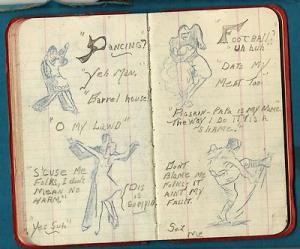 "DANCING?
"Yeh Man,"
"Barrel house"
"O MY LAWD"
"S'CUSE ME
FOLKS, I don't
MEAN NO
HARM."
"DIS
is
SIMPLE.
"Yes Suh"
FOOTBALL?
"Uh huh"
"DATS MY
MEAT Too."
"PIGSKIN-PAPA IS MY NAME
THE WAY I DO IT IS A
SHAME."
DON'T
BLAME ME
FOLKSY IT
AIN'T MY
FAULT.
Sez Me